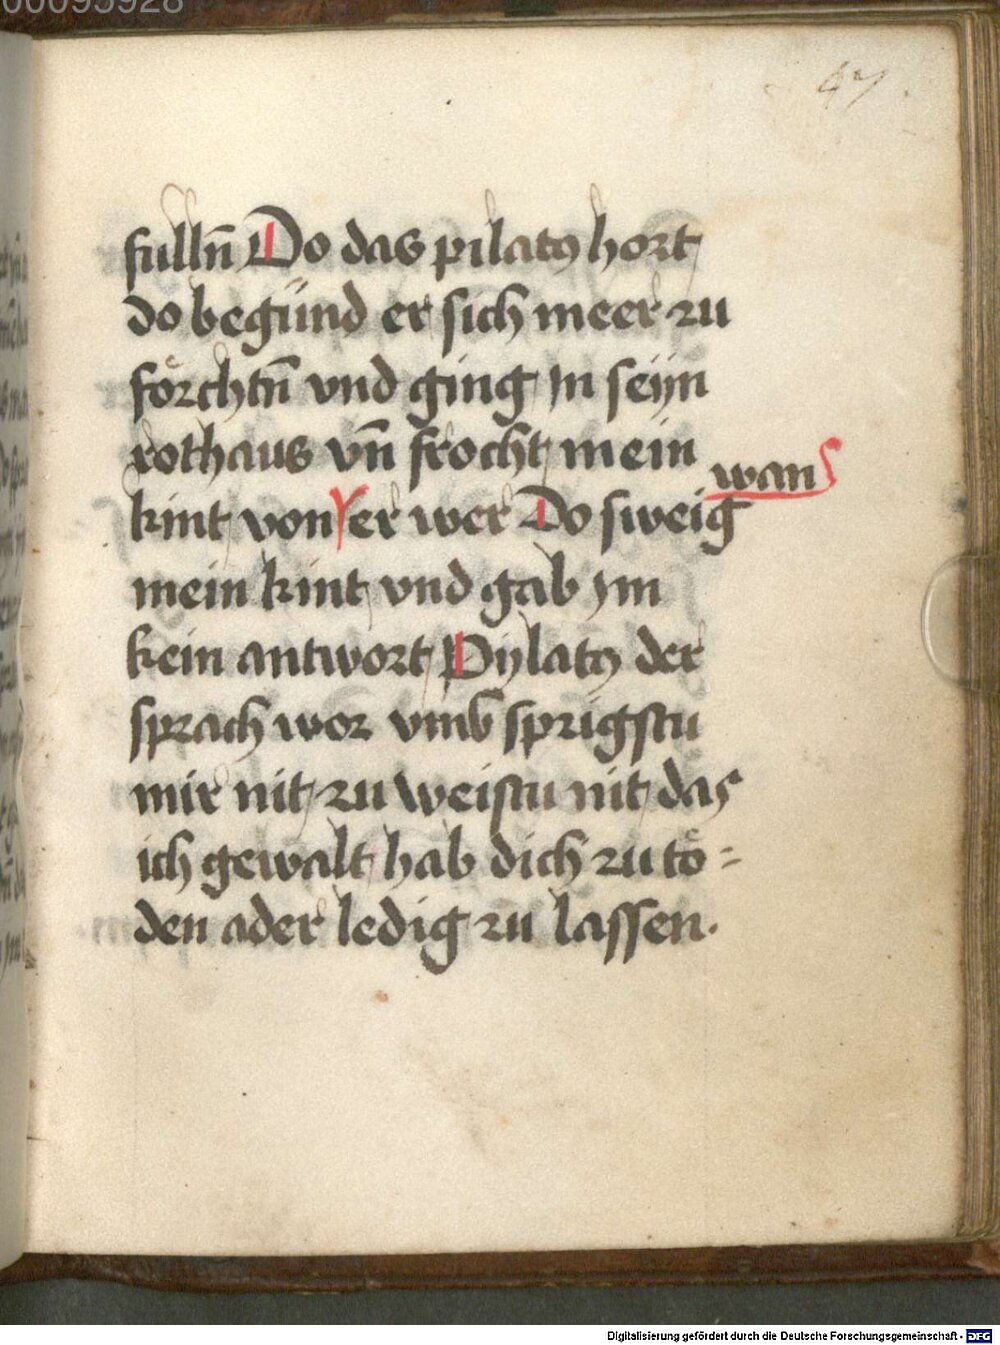 00095928
47
fullñ Do das pilatꝰ hort
do begünd er sich meer zu
förchtn̄ vnd ging jn seijn
rothaus vn̄ frocht mein
wan
kint von er wer Do sweig
mein kint vnd gab ym
kein antwort Pÿlatꝰ der
sprach wor vmb sprigstu
mir nit zu weistu nit das
ich gewalt hab dich zu tö=
den ader ledig zu lassen.
Digitalisierung gefördert durch die Deutsche Forschungsgemeinschaft - DFG